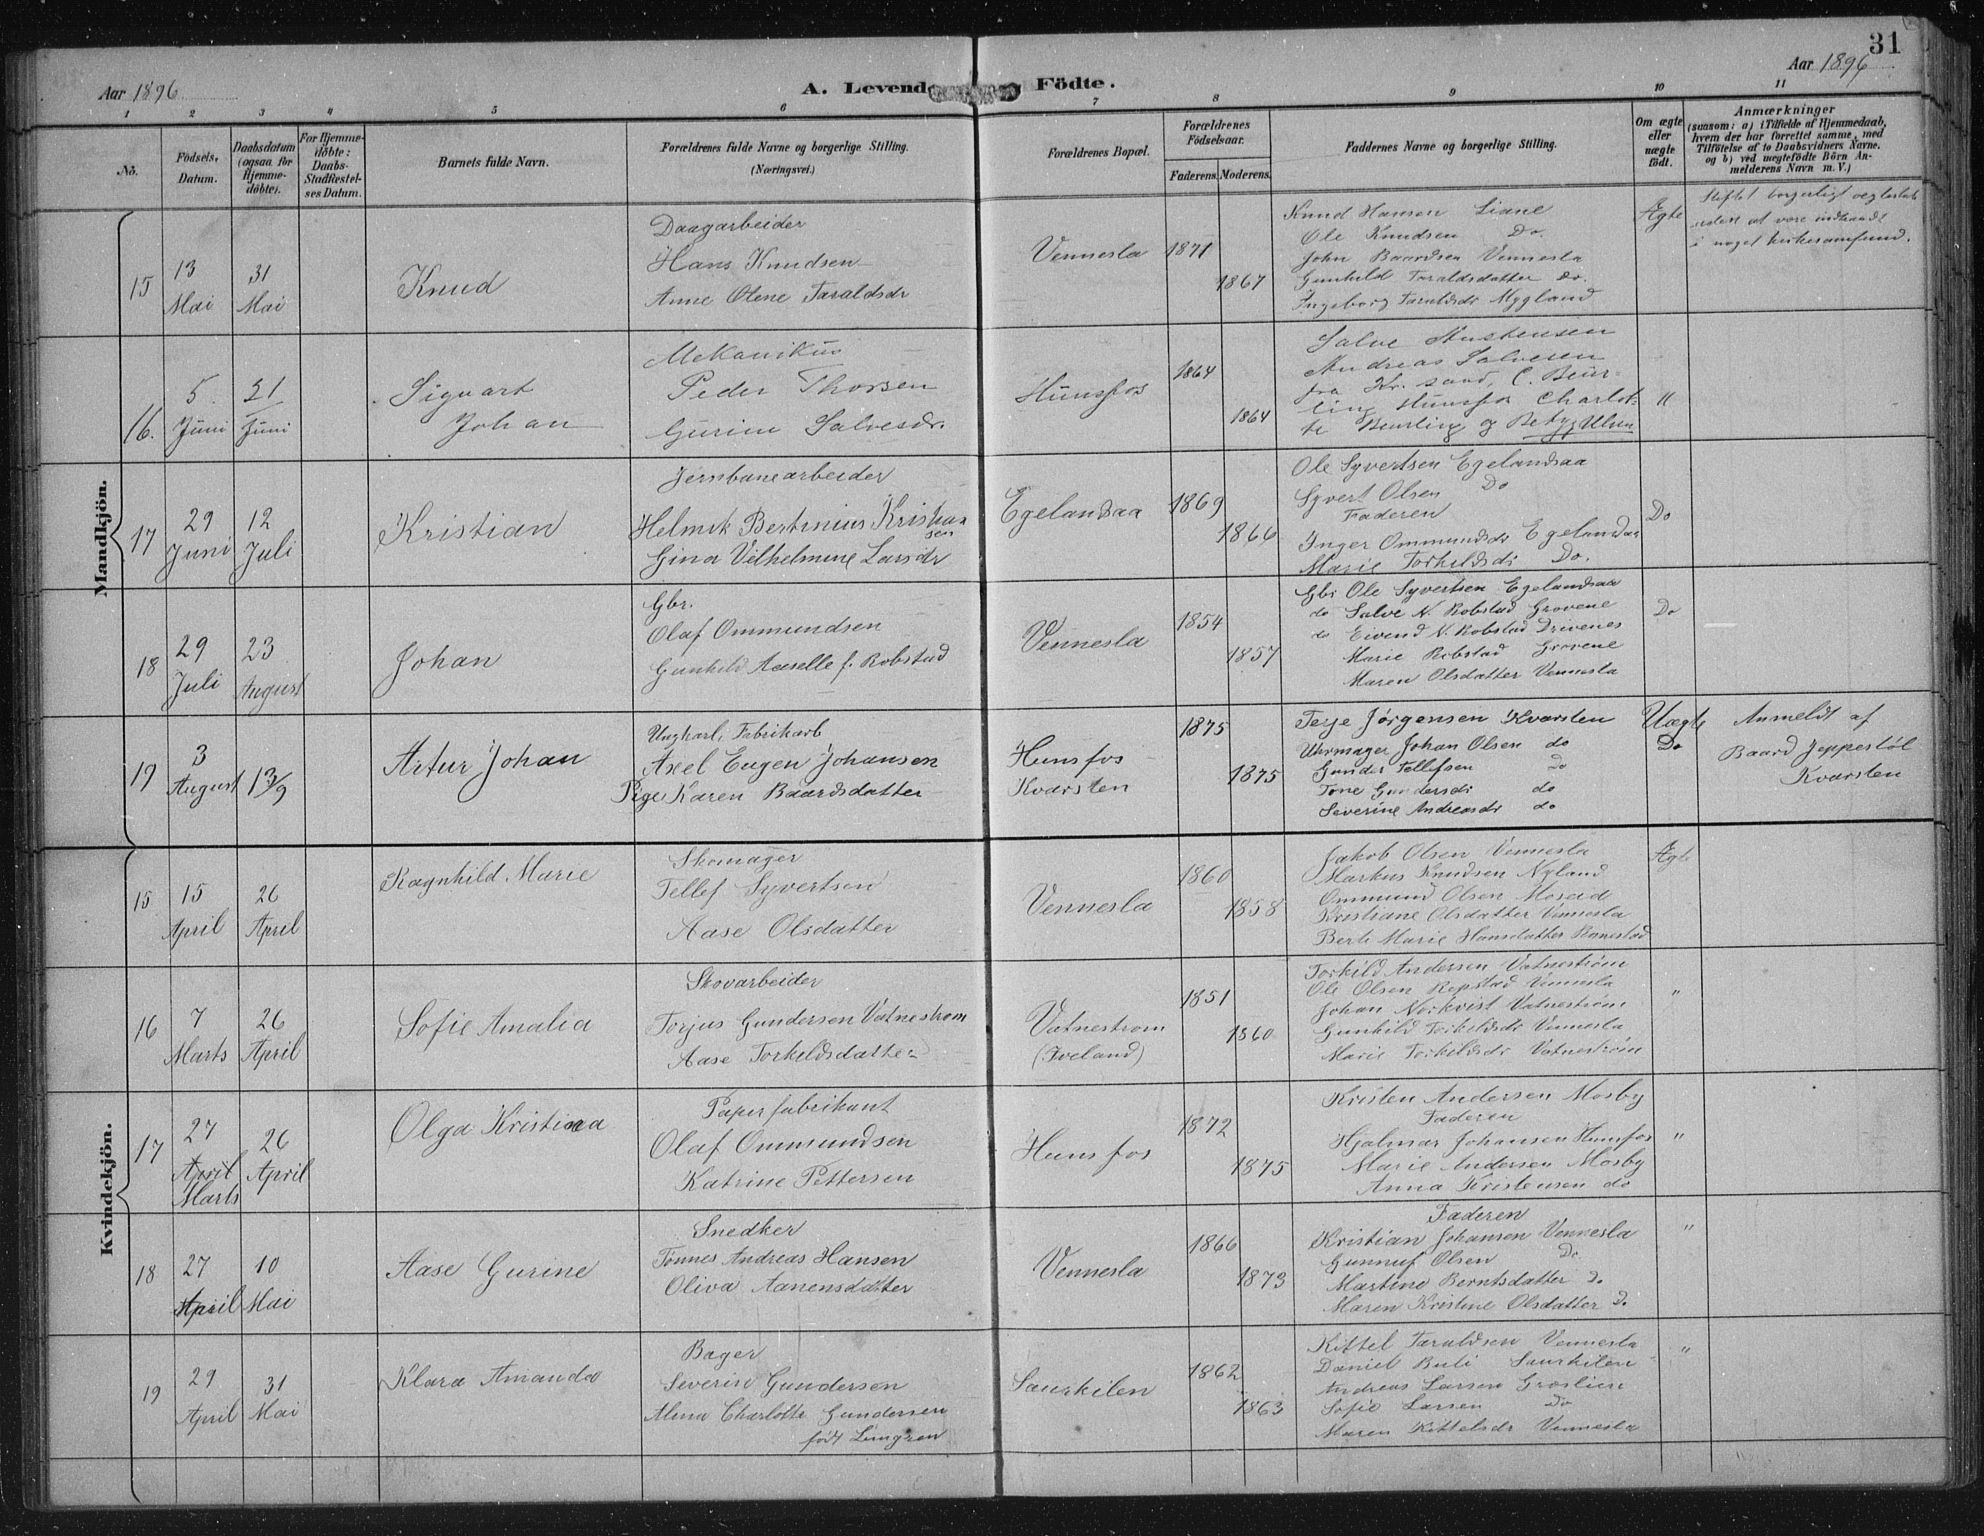 31
Aar 1896
A. Levende Födte.
Aar 1896
1 2 3 4 5 6 7 8 9 10 11
No.
Födsels-Datum.
Daabsdatum (ogsaa for Hjemme-döbte).
For Hjemme-döbte: Daabs-Stadfæstel-ses Datum.
Barnets fulde Navn.
Forældrenes fulde Navne og borgerlige Stilling.
(Næringsvei.)
Forældrenes Bopæl.
Forældrenes Födselsaar.
Faderens. Moderens.
Faddernes Navne og borgerlige Stilling.
Om ægte eller uægte født.
Anmærkninger
(saasom: a) i Tilfælde af Hjemmedaab,
hvem der har forrettet samme, med
Tilföielse af to Daabsvidners Navne.
og b) ved uægtefödte Börn An-
melderens Navn m. V.)
Mandkjön.
15
13 Mai
31 Mai
Knud
Daagarbeider
Hans Knudsen
Anne Olene Taraldsdr
Vennesla
1871
1867
Knud Hansen Liane
Ole Knudsen Do.
John Baardsen Vennesla
Gunhild Taraldsdatter Do.
Ingeborg Taraldsdr Mygland
Ægte
Stiftet borgerligt ægteskab
uden at være indtraadt
i noget kirkesamfund.
16.
5 Juni
21 Juni
Sigvart
Johan
Mekanikus
Peder Thorsen
Gurine Salvesdr.
Hunsfos
1864
1864
Salve Austensen
Andreas Salvesen
fra Kr.sand, C. Beur-
ling Hunsfos Charlot-
te Beurling og Betzy Ulsen
"
17
29 Juni
12 Juli
Kristian
Jernbanearbeider
Helmik Bertinius Kristian
sen
Gina Vilhelmine Larsdr
Egelandsaa
1869
1866
Ole Syvertsen Egelandsaa
Syvert Olsen Do
Faderen
Inger Ommundsdr Egelandsaa
Marie Torkildsdr Do.
Do
18
29 Juli
23 August
Johan
Gbr.
Olaf Ommundsen
Gunhild Aaselle f. Robstad
Vennesla
1854
1857
Gbr Ole Syvertsen Egelandsaa
do Salve N. Robstad Grovene
do Eivend N. Robstad Drivenes
Marie Robstad Grovene
Maren Olsdatter Vennesla
Do
19
3 August
13/9
Artur Johan
Ungkarl. Fabrikarb
Axel Eugen Johansen
Pige Karen Baardsdatter
Hunsfos
Kvarsten
1875
1875
Terje Jørgensen Kvarsten
Uhrmager Johan Olsen do
Gunder Tellefsen Do
Tone Gundersdr do
Severine Andreasdr do
Uægte
Do
Anmeldt af
Baard Jeppestöl
Kvarsten
Kvindekjön.
15
15 April
26 April
Ragnhild Marie
Skomager
Tellef Syvertsen
Aase Olsdatter
Vennesla
1860
1858
Jakob Olsen Vennesla
Markus Knudsen Nyland
Ommund Olsen Moseid
Kristiane Olsdatter Vennesla
Berte Marie Hansdatter Ranestad
Ægte
16
7 Marts
26 April
Sofie Amalia
Skovarbeider
Torjus Gundersen Vatnestrøm
Aase Torkildsdatter
Vatnestrøm
(Iveland)
1851
1860
Torkild Andersen Vatnestrøm
Ole Olsen Repstad Vennesla
Johan Norkvist Vatnestrøm
Gunhild Torkildsdr Vennesla
Marie Torkildsdr Vatnestrøm
"
17
27 April Marts
26 April
Olga Kristiana
Papirfabrikant
Olaf Ommundsen
Katrine Pettersen
Hunsfos
1872
1875
Kristen Andersen Mosby
Faderen
Hjalmar Johansen Hunsfos
Marie Andersen Mosby
Anna Kristensen do
"
18
27 April
10 Mai
Aase Gurine
Snedker
Tønnes Andreas Hansen
Oliva Aanensdatter
Vennesla
1866
1873
Faderen
Kristian Johansen Vennesla
Gunnuf Olsen Do
Martine Berntsdatter Do
Maren Kristine Olsdatter Do
"
19
29 April
31 Mai
Klara Amanda
Bager
Severin Gundersen
Alma Charlotte Gundersen
født Lungren
Saurkilen
1862
1863
Kittel Taraldsen Vennesla
Daniel Buli Saurkilen
Andreas Larsen Graslien
Sofie Larsen Do
Maren Kittelsdr Vennesla
"